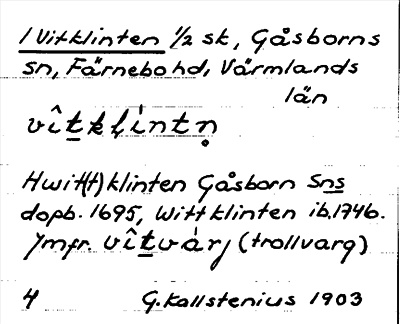 /Vitklinten ½ sk, Gåsborns
sn, Färnebo hd, Värmlands
län
vîtklìntn̥
Hwit(t)klinten Gåsborn Sns
dopb. 1695, Witt klinten ib. 1746.
Jmfr. vîtvàrj (trollvarg)
4 G. Kallstenius 1903